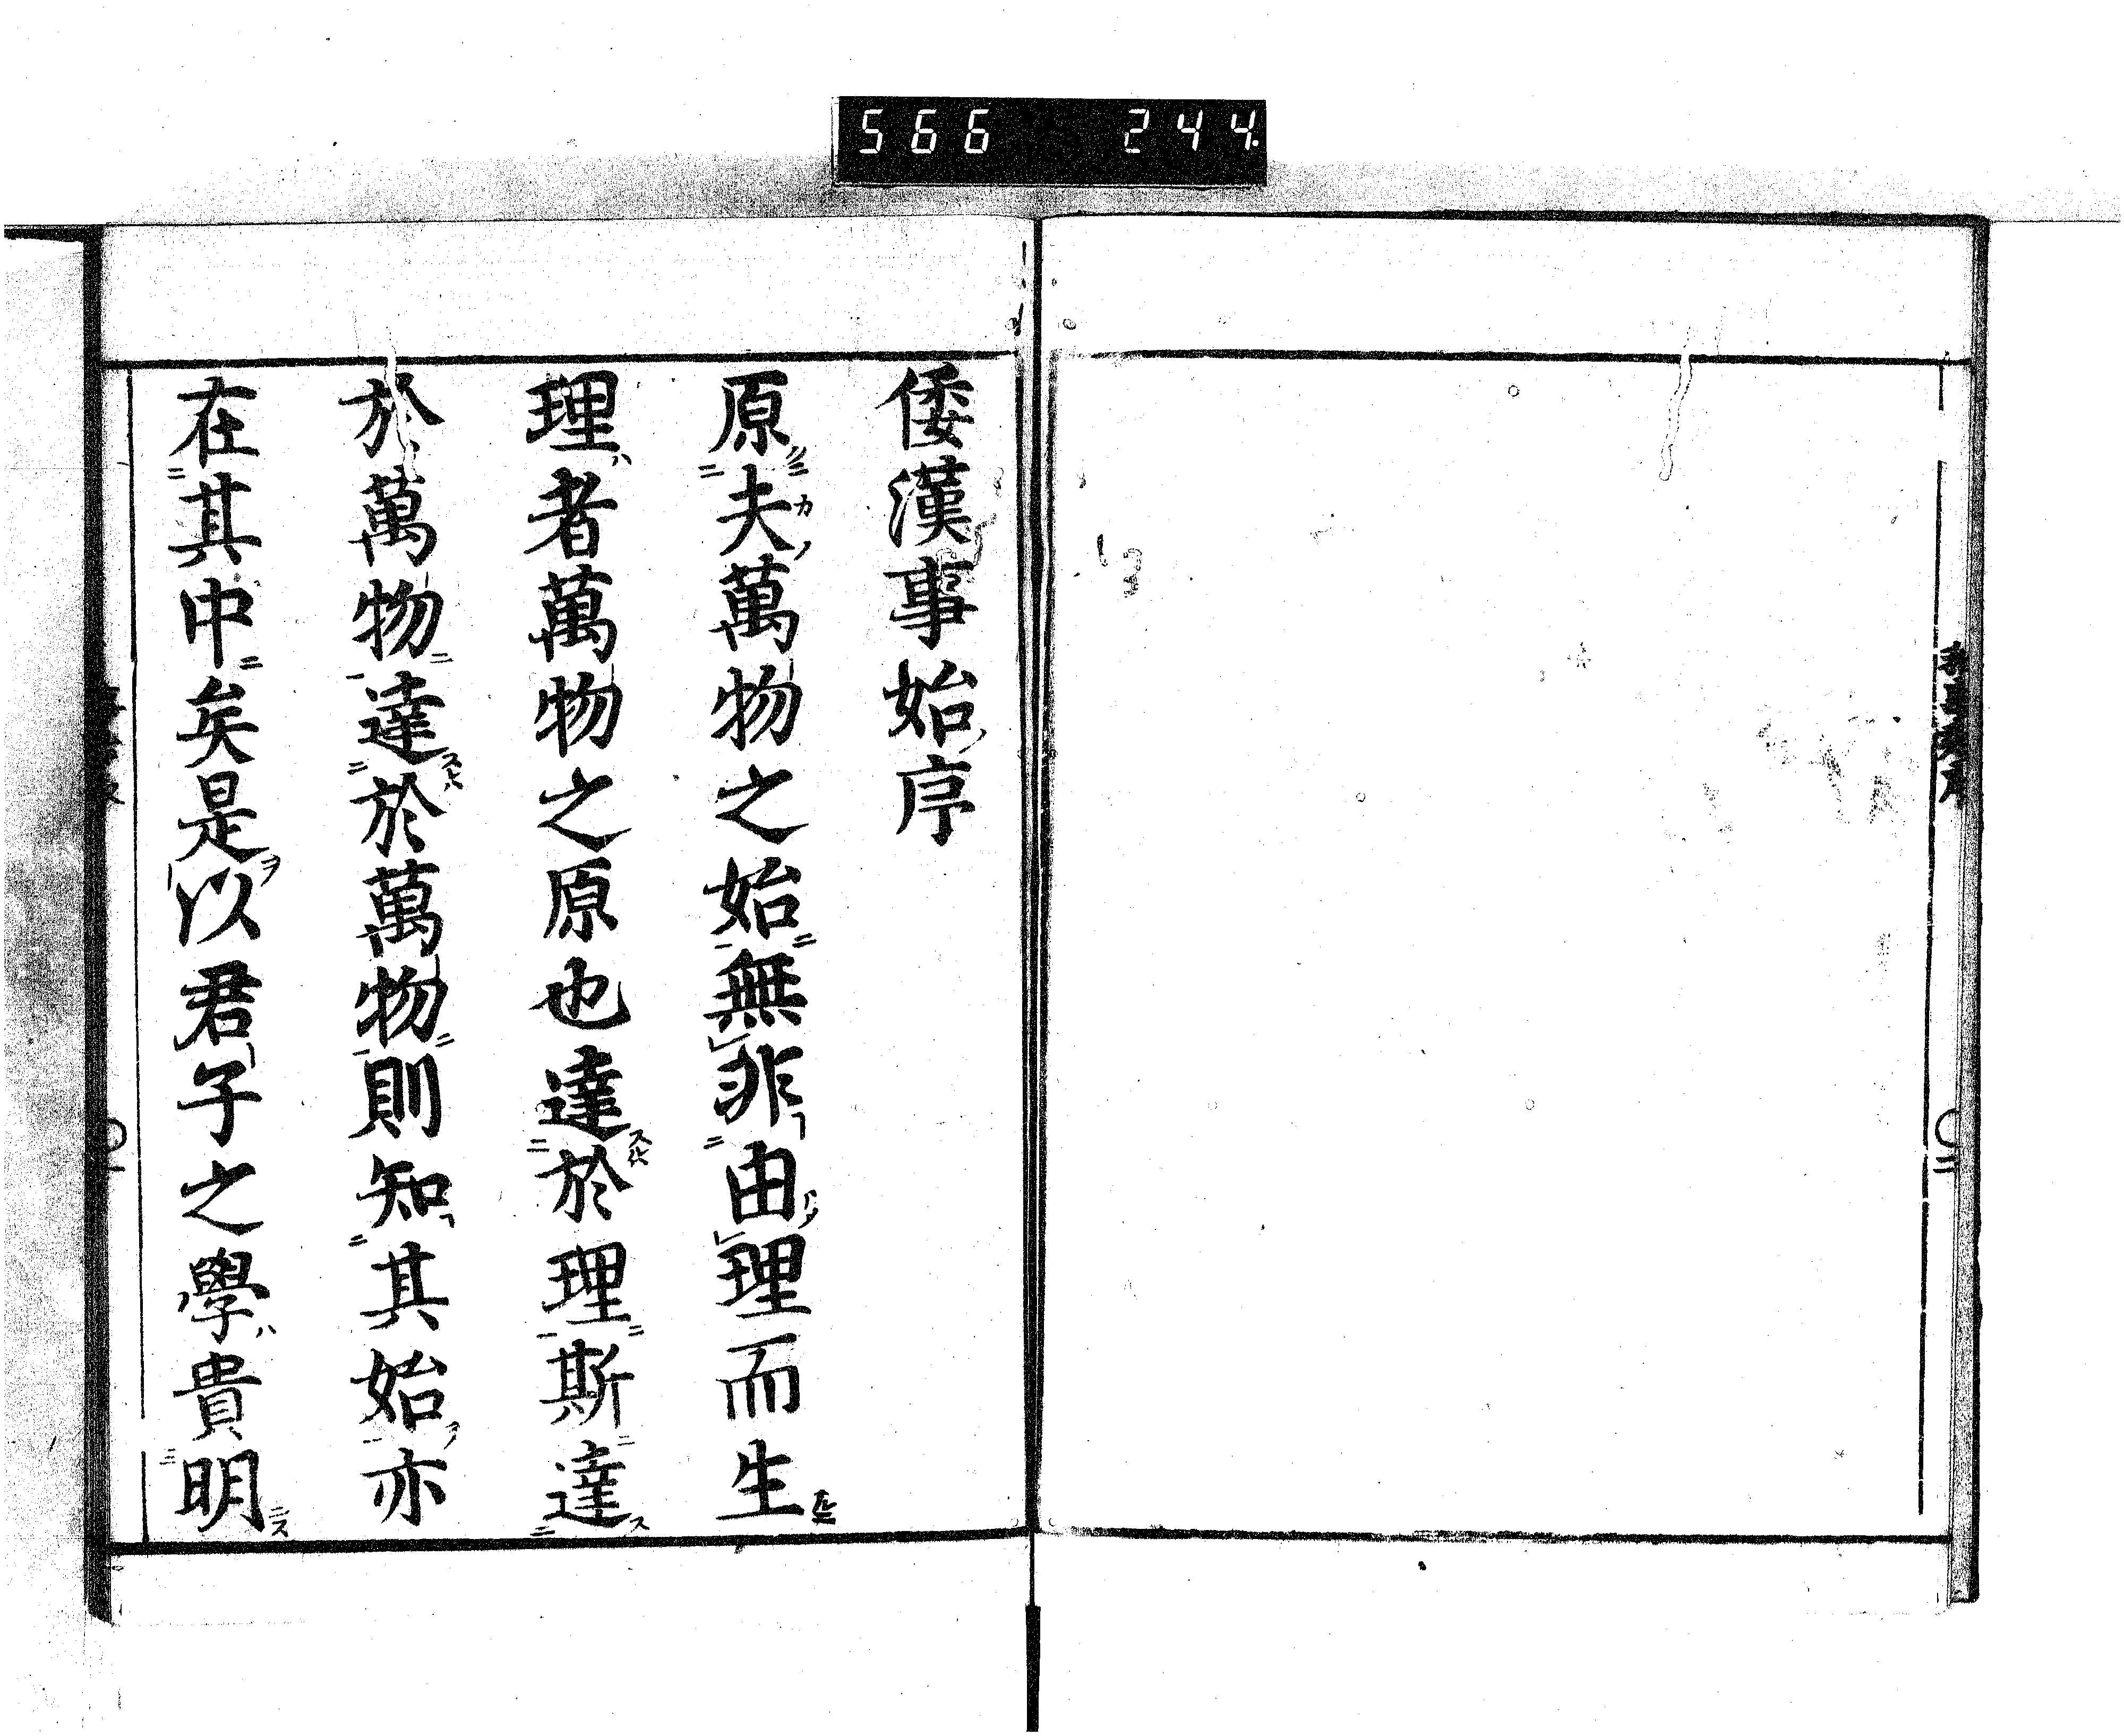 566 244
倭漢事始序
原夫萬物之始無非由理而生
理者萬物之原也達於理斯達
於萬物達於萬物則知其始亦
在其中矣是以君子之學貴明